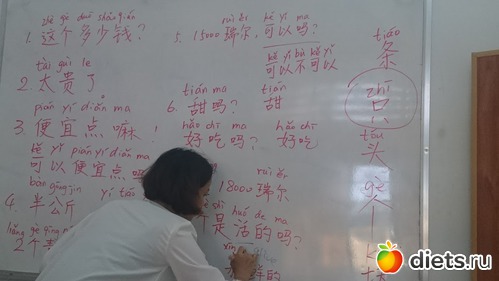 zhè gè duō shǎo qián
1. 这个多少钱?
tài guì le
2. 太贵了
pián yí diǎn ma
3. 便宜点嘛!
kě yǐ pián yí diǎn ma
可以便宜点吗
bàn gōng jīn
4. 半公斤
2个
ruì ěr kě yǐ ma
5. 15000瑞尔,可以吗?
kě yǐ bù kě yǐ
可以不可以
tián ma tián
6. 甜吗? 甜
hǎo chī ma hǎo chī
好吃吗? 好吃
ruì ěr
18000瑞尔
shì huó de ma
个是活的吗?
的
tiáo
条
zhī
只
tóu
头
gè
个
diets.ru